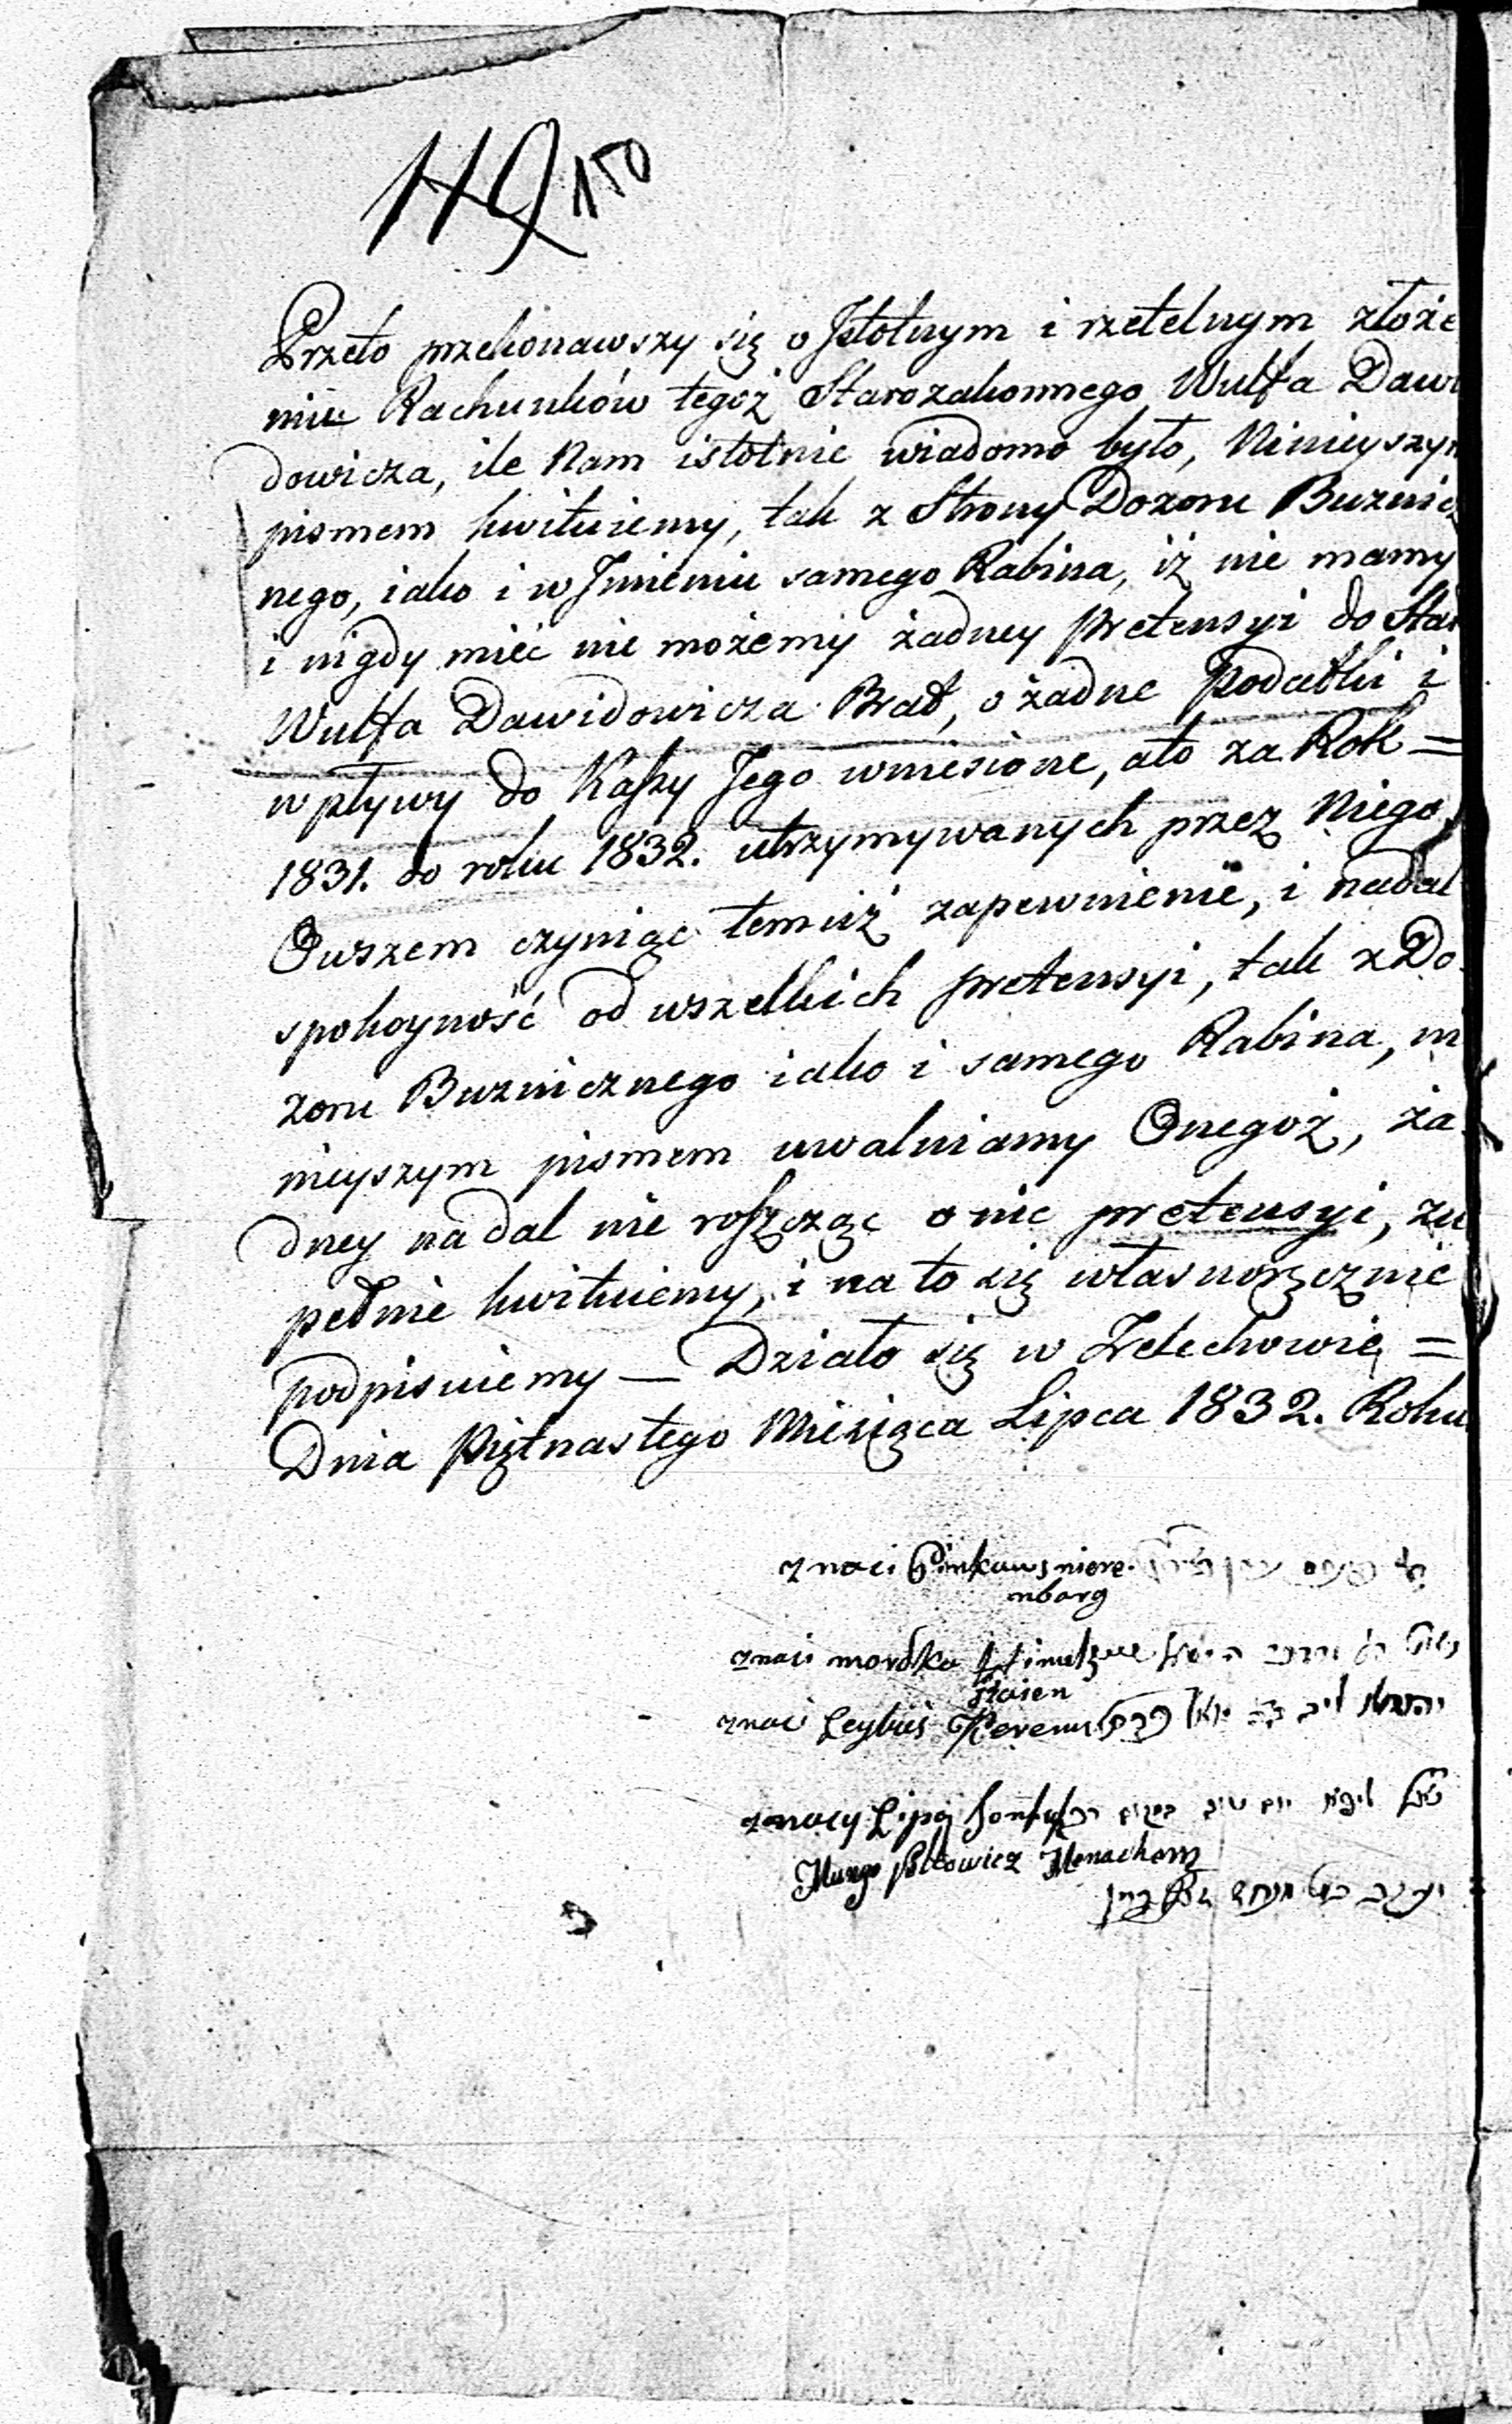 119 150
Przeto przekonawszy się o Jstotnym i rzetelnym złoże
niu Rachunków tegoż Starozakonnego Wulfa Dawi
dowicza, ile Nam istotnie wiadomo było, Ninieyszym
pismem kwituiemy, tak z Strony Dozoru Bużnicz
nego, iako i w Jmieniu samego Rabina, iż nie mamy
i nigdy mieć nie możemy żadney pretensyi do Star
Wulfa Dawidowicza Brat, o żadne Podatki i
wpływy do Kassy Jego wniesione, ato za Rok =
1831. do roku 1832. utrzymywanych przez Niego,
Owszem czyniąc temuż zapewnienie, i nadal
spokoyność od wszelkich pretensyi, tak z Do
zoru Buznicznego iako i samego Rabina, ni
nieyszym pismem uwalniamy Onegoż, ża
dney nadal nie roszcząc o nic pretensyi, zu
pełnie kwituiemy, i na to się własnoręcznie
podpisuiemy — Działo się w Zelechowie =
Dnia Piętnastego Miesiąca Lipca 1832. Roku
znaci Pinkaws niore
nbarg
znaci mordka
sztaien
znaci Leybuś
יהודא ליב בר
znacy Lipa
יום טוב
Menachem
יעקב מנחם